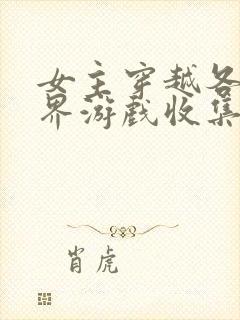 女主穿越各
界游戏收集
肖虎